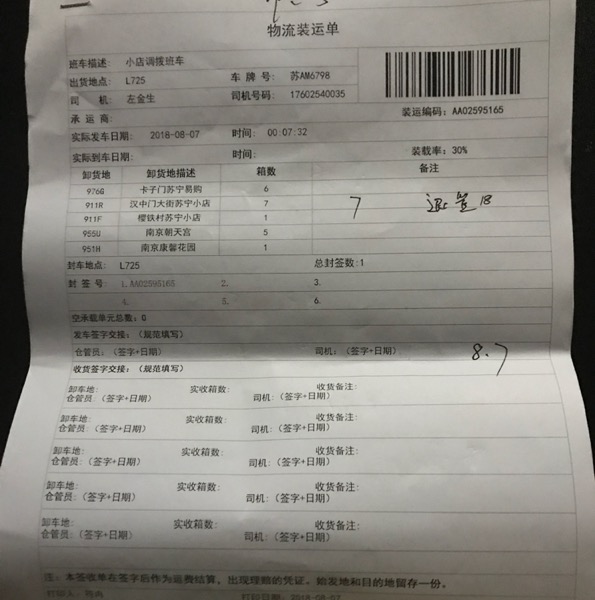 物流装运单
班车描述: 小店调拨班车
出货地点: L725 车 牌 号: 苏AM6798
司 机: 左金生 司机号码: 17602540035
承 运 商: 装运编码: AA02595165
实际发车日期: 2018-08-07 时间: 00:07:32
实际到车日期: 时间: 装载率: 30%
卸货地 卸货地描述 箱数 备注
976G 卡子门苏宁易购 6
911R 汉中门大街苏宁小店 7 7
911F 樱铁村苏宁小店 1
955U 南京朝天宫 5
951H 南京康馨花园 1
封车地点: L725 总封签数:1
封 签 号: 1.AA02595165 2. 3.
4. 5. 6.
空承载单元总数: 0
发车签字交接: (规范填写)
仓管员: (签字+日期) 司机: (签字+日期) 8.7
收货签字交接: (规范填写)
卸车地: 实收箱数: 收货备注:
仓管员: (签字+日期) 司机: (签字+日期)
卸车地: 实收箱数: 收货备注:
仓管员: (签字+日期) 司机: (签字+日期)
卸车地: 实收箱数: 收货备注:
仓管员: (签字+日期) 司机: (签字+日期)
卸车地: 实收箱数: 收货备注:
仓管员: (签字+日期) 司机: (签字+日期)
卸车地: 实收箱数: 收货备注:
仓管员: (签字+日期) 司机: (签字+日期)
注: 本签收单在签字后作为运费结算, 出现理赔的凭证。始发地和目的地留存一份。
打印日期: 2018-08-07